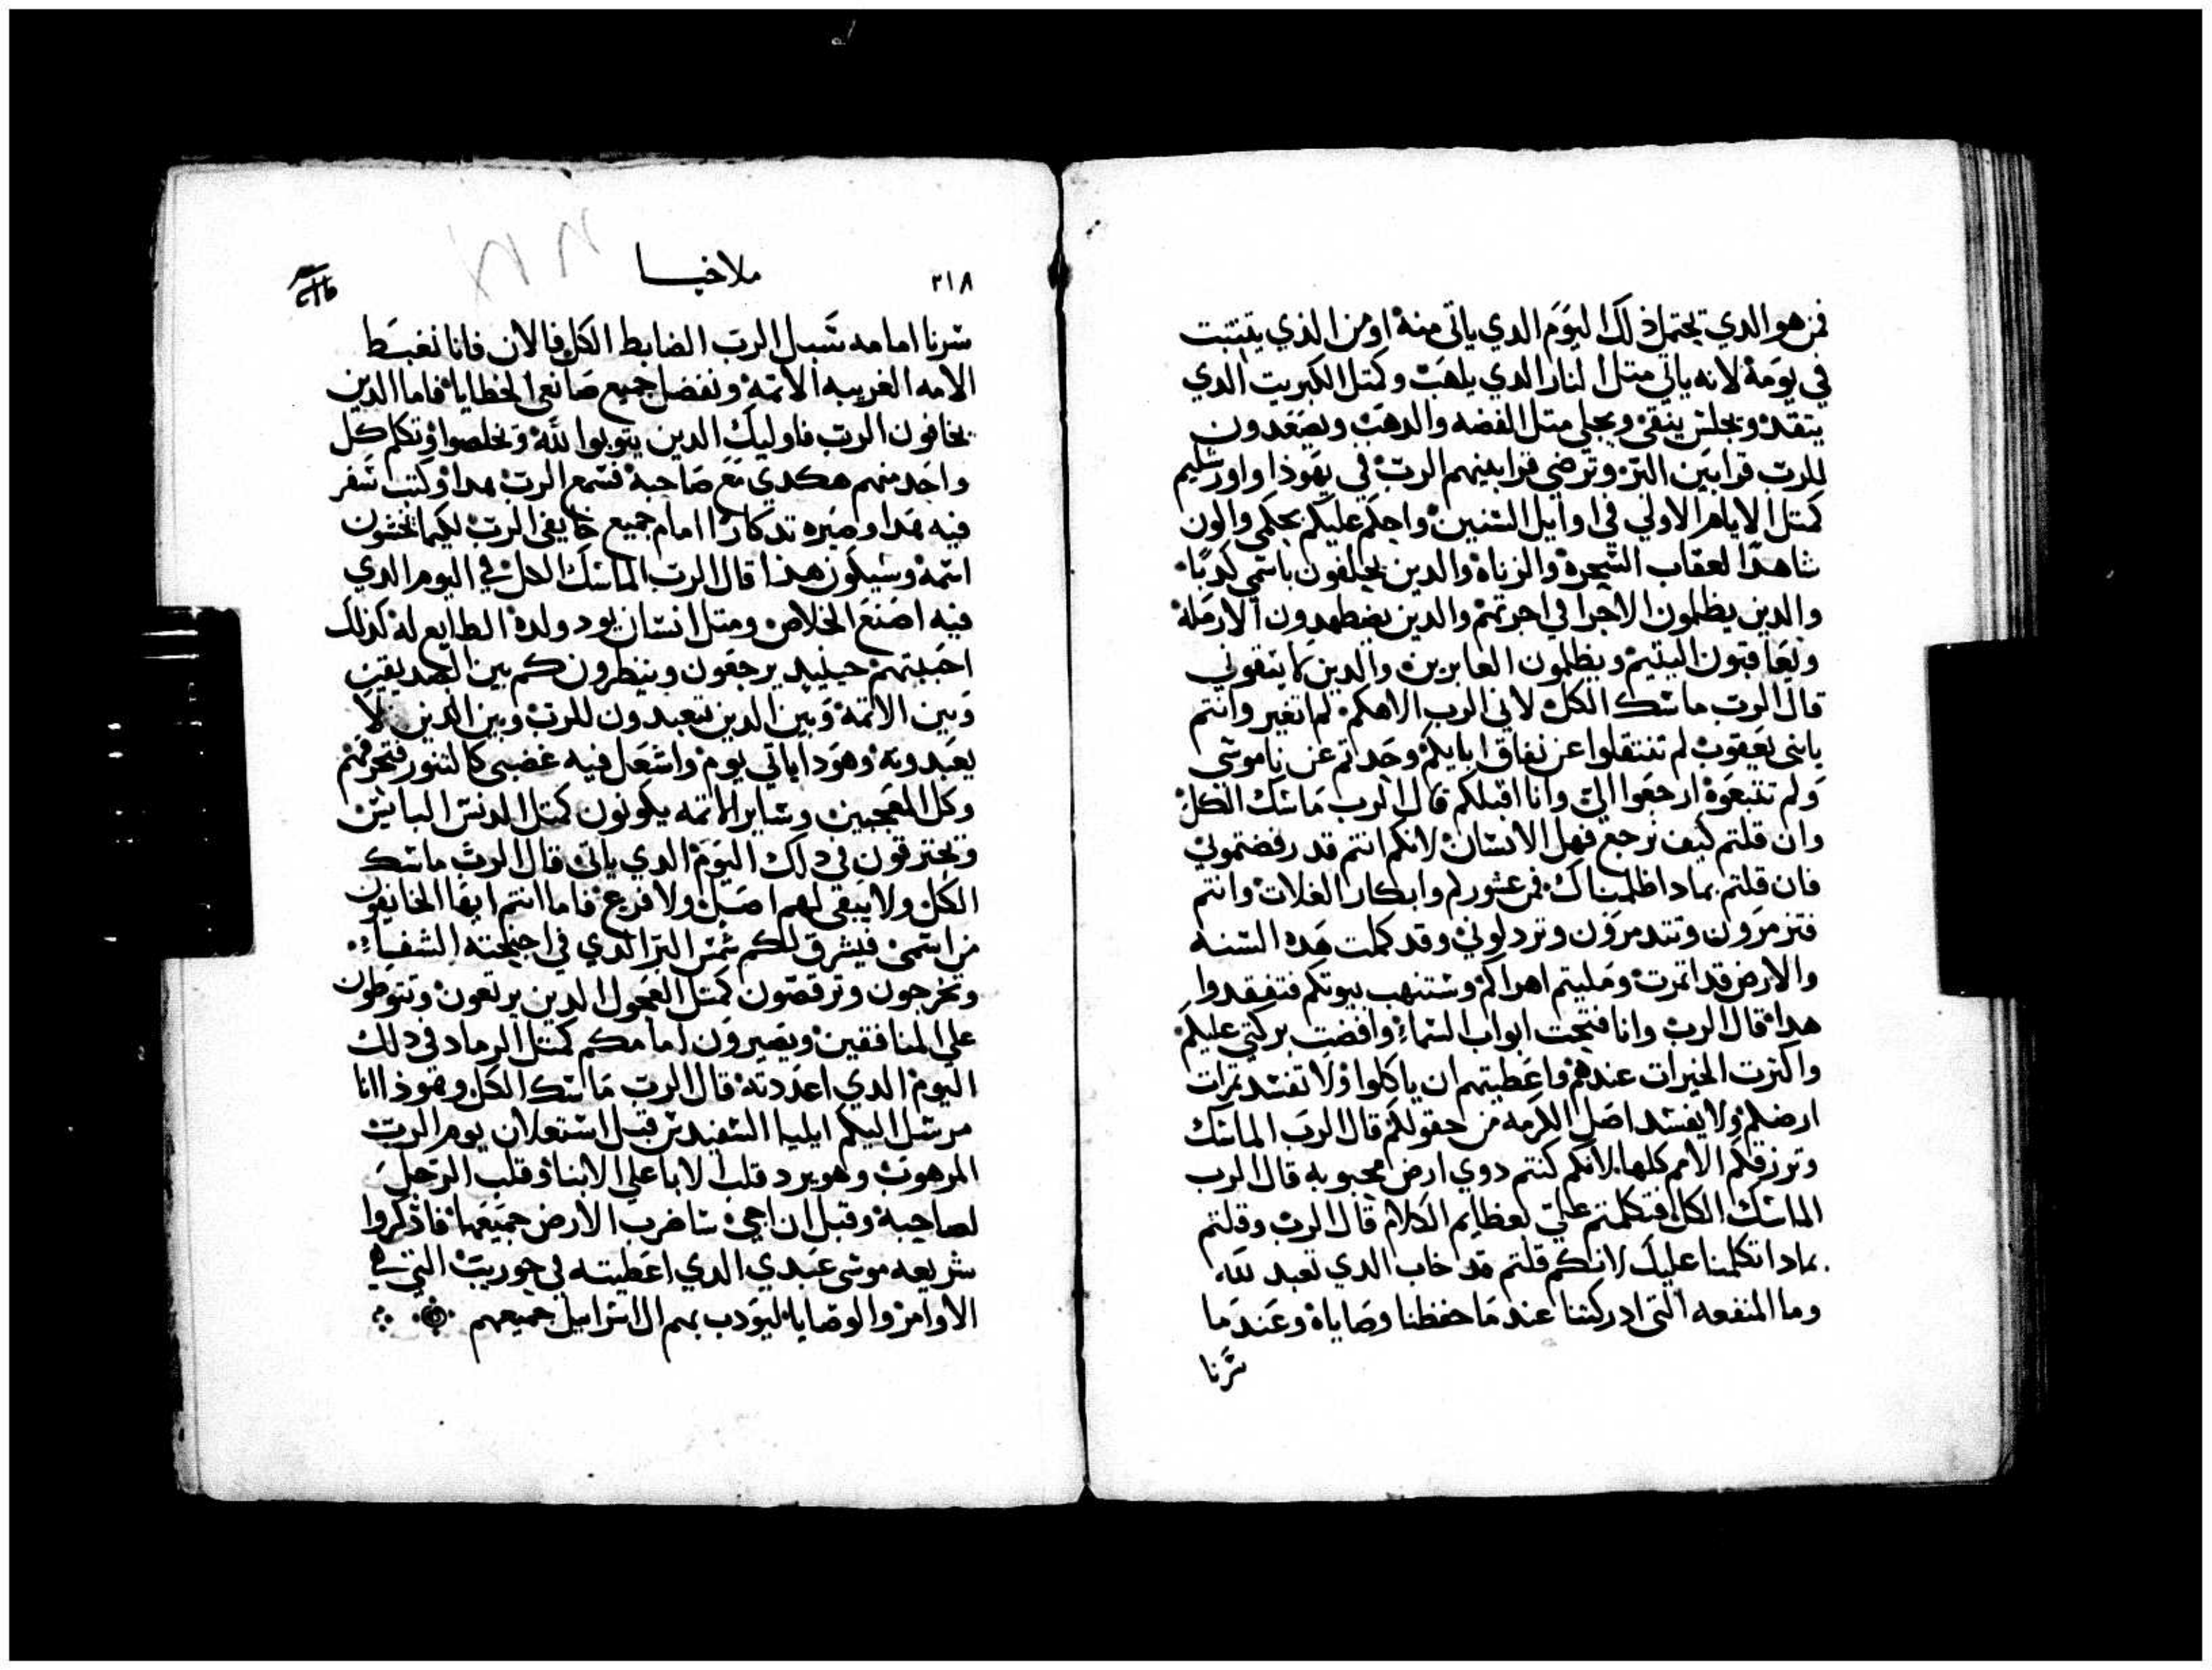 فمن هو الدي يحتمل دلك اليوم الدي ياتي منه اومن الذي يتبتت
في يومه لانه ياتي متل النار الدي يلهب وكمتل الكبريت الدي
يتقد ويجلس ينقي ويجلي متل الفضه والدهب ويصعدون
للرب قرابين البر وترضي قرابينهم الرب في يهوذا واورشليم
كمتل الايام الاولي في اوايل السنين واحكم عليكم بحكمي واكون
شاهدًا لعقاب السحره والزناه والدين يحلفون باسمي كدبًا
والدين يظلمون الاجرا في اجرتهم والدين يضطهدون الارمله
ويعاقبون اليتيم ويظلمون العابرين والدين لا يتقوني
قال الرب ماسك الكل لاني الرب الاهكم لم اتغير وانتم
يابني يعقوب لم تنتقلوا عن نفاق ابايكم وحدتم عن ناموسي
ولم تتبعوه ارجعوا الي وانا اقبلكم قال الرب ماسك الكل
وان قلتم كيف نرجع فهل الانسان لانكم انتم قد رفضتموني
فان قلتم بمادا ظلمناك فمن عشوركم وابكار الغلات وانتم
فتزمرون وتتدمرون وتردلوني وقد كملت هده السنه
والارض قد اتمرت ومليتم اهراكم وستنهب بيوتكم فتفقدوا
هدا قال الرب وانا فتحت ابواب السماء وافضت بركتي عليكم
واكترت الخيرات عندهم واعطيتهم ان ياكلوا ولا تفسد تمرات
ارضكم ولا يفسد اصل الكرمه من حقولكم قال الرب الماسك
وترزقكم الامم كلها لانكم كنتم دوي ارض محبوبه قال الرب
الماسك الكل افتكلمتم علي بعظايم الكلام قال الرب وقلتم
بمادا تكلمنا عليك لانكم قلتم قد خاب الدي تعبد لله
وما المنفعه التي ادركتنا عندما حفظنا وصاياه وعندما
سرنا
٣١٨
ملاخيا
سرنا امامه سبيل الرب الضابط الكل فالان فانا نغبط
الامه الغريبه الاتمه ونفضل جميع صانعي الخطايا فاما الدين
يخافون الرب فاوليك الدين يتوبوا لله ويخلصوا وتكلم كل
واحد منهم هكدي مع صاحبه فسمع الرب بهدا وكتب سفر
فيه بهدا وصيره تدكارًا امام جميع خايفي الرب لكيما يخشون
اسمه وسيكون هذا قال الرب الماسك الكل في اليوم الدي
فيه اصنع الخلاص ومتل انسان يود ولده الطايع له كدلك
احببتهم حينيد يرجعون وينظرونكم بين الصديقين
وبين الاتمه وبين الدين يتعبدون للرب وبين الدين لا
يعبدونه وهودا ياتي يوم واشعل فيه غضبي كالتنور فتحرقهم
وكل المعجبين وساير الاتمه يكونون كمتل الدنس اليابس
ويحترقون في دلك اليوم الدي ياتي قال الرب ماسك
الكل ولا يبقي لهم اصل ولا فرع فاما انتم ايها الخايفون
من اسمي فيشرق لكم شمس البر الدي في اجنحته الشفاء
وتخرجون وترقصون كمتل العجول الدين يرتعون وتتوطون
علي المنافقين ويصيرون امامكم كمتل الرماد في دلك
اليوم الدي اعددته قال الرب ماسك الكل وهوذا انا
مرسل اليكم ايليا السفيد من قبل استعلان يوم الرب
المرهوب وهو يرد قلب الابا علي الابنا وقلب الرجل
لصاحبه وقبل ان اجي ساضرب الارض جميعها فاذكروا
شريعه موسي عبدي الدي اعطيته في حوريب التي هي
الاوامر والوصايا ليودب بهم ال اسراييل جميعهم